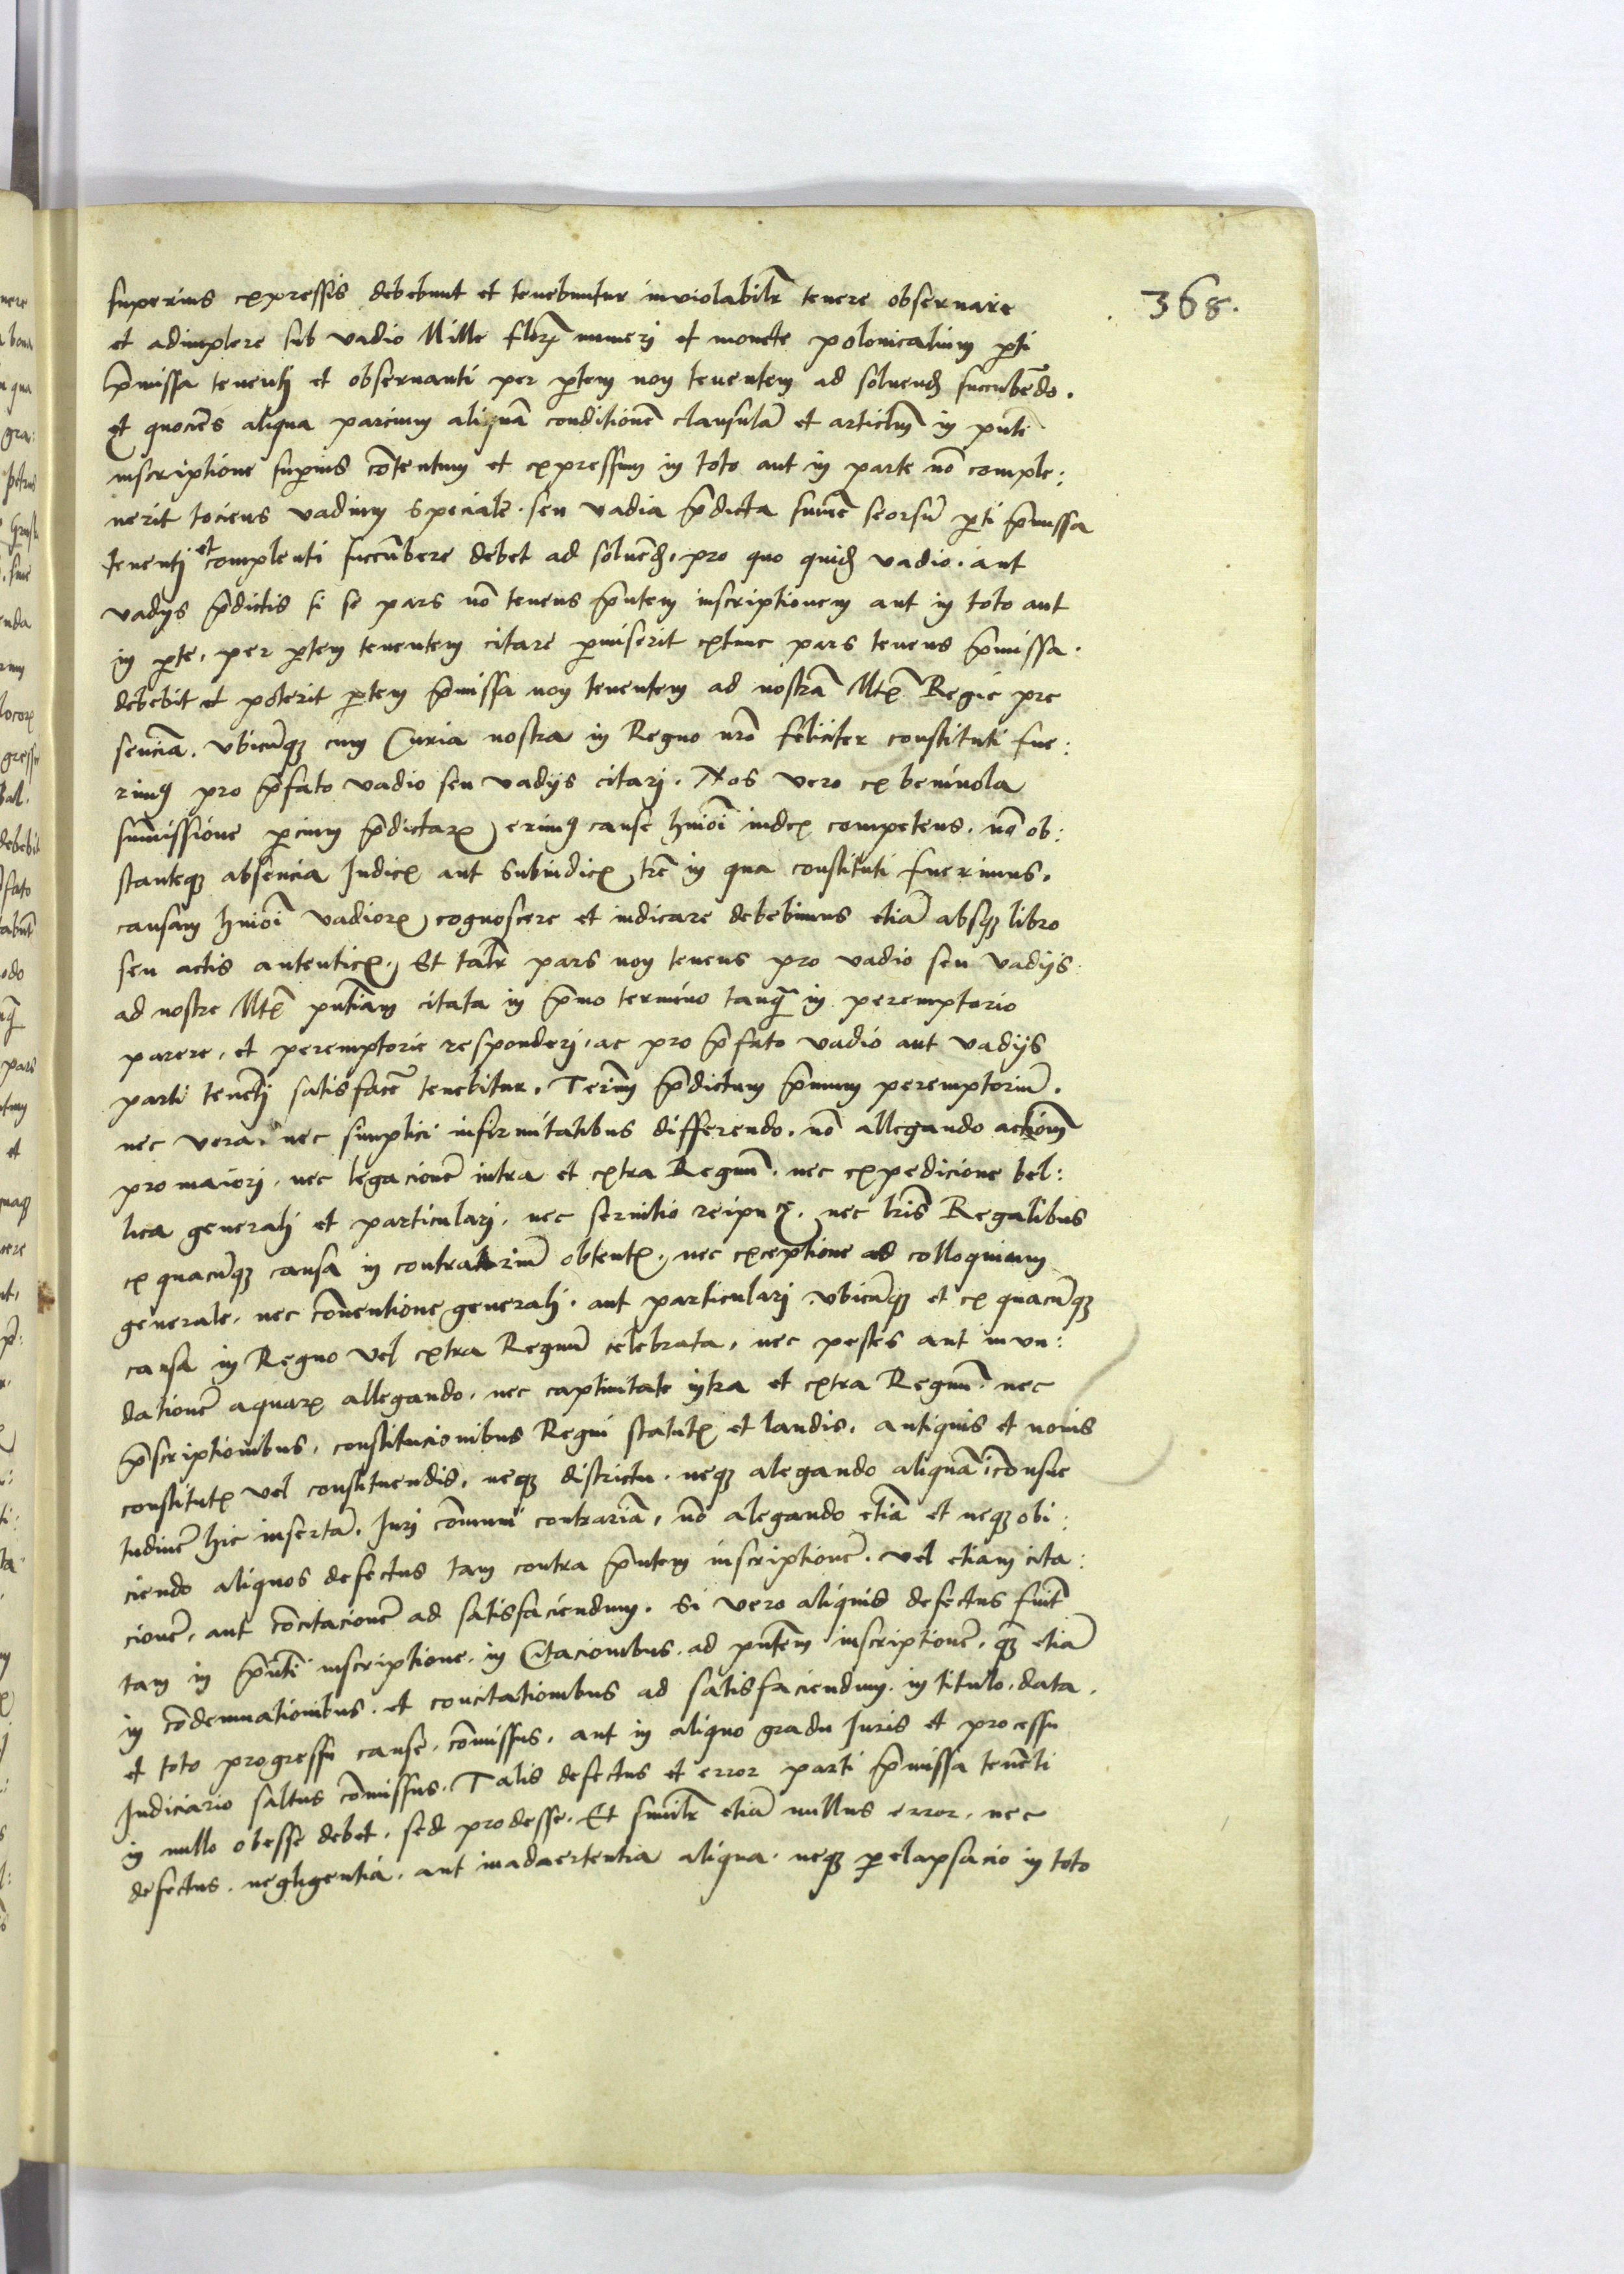 368.
superius expressis debebunt et tenebuntur inviolabilr tenere observare
et adimplere sub vadio Mille flor numeri et monete polonicalium pti
pmissa tenenti et observanti per ptem non tenentem ad solvend succubendo.
et quociens aliqua parcium aliquā conditionē clausulā et articlm in pnti
inscriptione supius cōtentum et expressum in toto aut in parte nō comple:
verit tociens vadium speciale. seu vadia pdicta sume seorsū pti pmissa
tenenti et complenti succūbere debet ad solvend. pro quo quid vadio. aut
vadijs pdictis si se pars nō tenens pntem inscriptionem aut in toto aut
in pte, per ptem tenentem citare pmiserit extunc pars tenens pmissa.
debebit et poterit ptem pmissa non tenentem ad nostrā Mtē Regie pre
senciā. vbicūq cum Curia nostra in Regno nrō feliciter constituti fue:
rimq pro pfato vadio seu vadijs citari. Nos vero ex benivola
sūmissione pcium pdictar erimq cause hmōi index competens. nō ob:
stanteq absencia Judicx aut Subiudicx tre in qua constituti fuerimus.
causam hmōi vadior cognoscere et iudicare debebimus etiā absq libro
seu actis autenticx. Et talr pars non tenens pro vadio seu vadijs
ad nostre Mtx pntiam citata in pmo termino tanq in peremptorio
parere, et peremptorie responderi, ac pro pfato vadio aut vadijs
parti tenēti satisfacē tenebitur. Termī pdictum pmum peremptoriū.
nec vera nec simplici infirmitatibus differendo. nō allegando actiōm
pro maiori. nec legacionē intra et extra Regnū. nec expedicione bel:
lica generali et particulari. nec servitio reipu. nec lris Regalibus
ex quacūq causa in contrariū obtentx. nec exceptione ad colloquium
generale. nec cōventione generali. aut particulari. vbicūq et ex quacūq
causa in Regno vel extra Regnū celebrata, nec pestes aut inun:
dationē aquar allegando. nec captivitate intra et extra Regnū. nec
pscriptionibus, constitucionibus Regni statutx et laudis, antiquis et novis
constitutx vel constituendis, neq districtu. neq alegando aliquā consue
tudinē hic insertā. Juri cōmuni contrariā, nō alegando etiā et neq obi:
ciendo aliquos defectus tam contra pntem inscriptionē. vel etiam cita:
cionē, aut cōcitacionē ad satisfaciendum. Si vero aliquis defectus fuit
tam in pnti inscriptione. in Citacionibus. ad pntem inscriptionē. qm etiā
in cōdemnationibus. et concitationibus ad satisfaciendum. in titulo. data.
et toto progressu cause. cōmissus, aut in aliquo gradu Juris et processu
Judiciario saltus cōmissus. Talis defectus et error parti pmissa tenēti
in nullo obesse debet. sed prodesse. Et similr etiā nullus error. nec
defectus. negligentia. aut inadvertentia aliqua. neq pelapsacio in toto